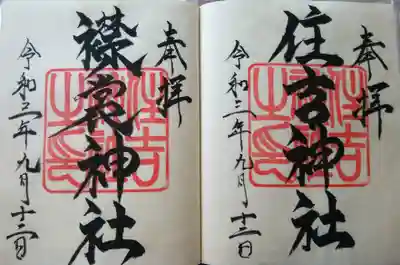 奉拝
住吉神社
令和三年九月十二日
奉拝
襟裳神社
令和三年九月十二日